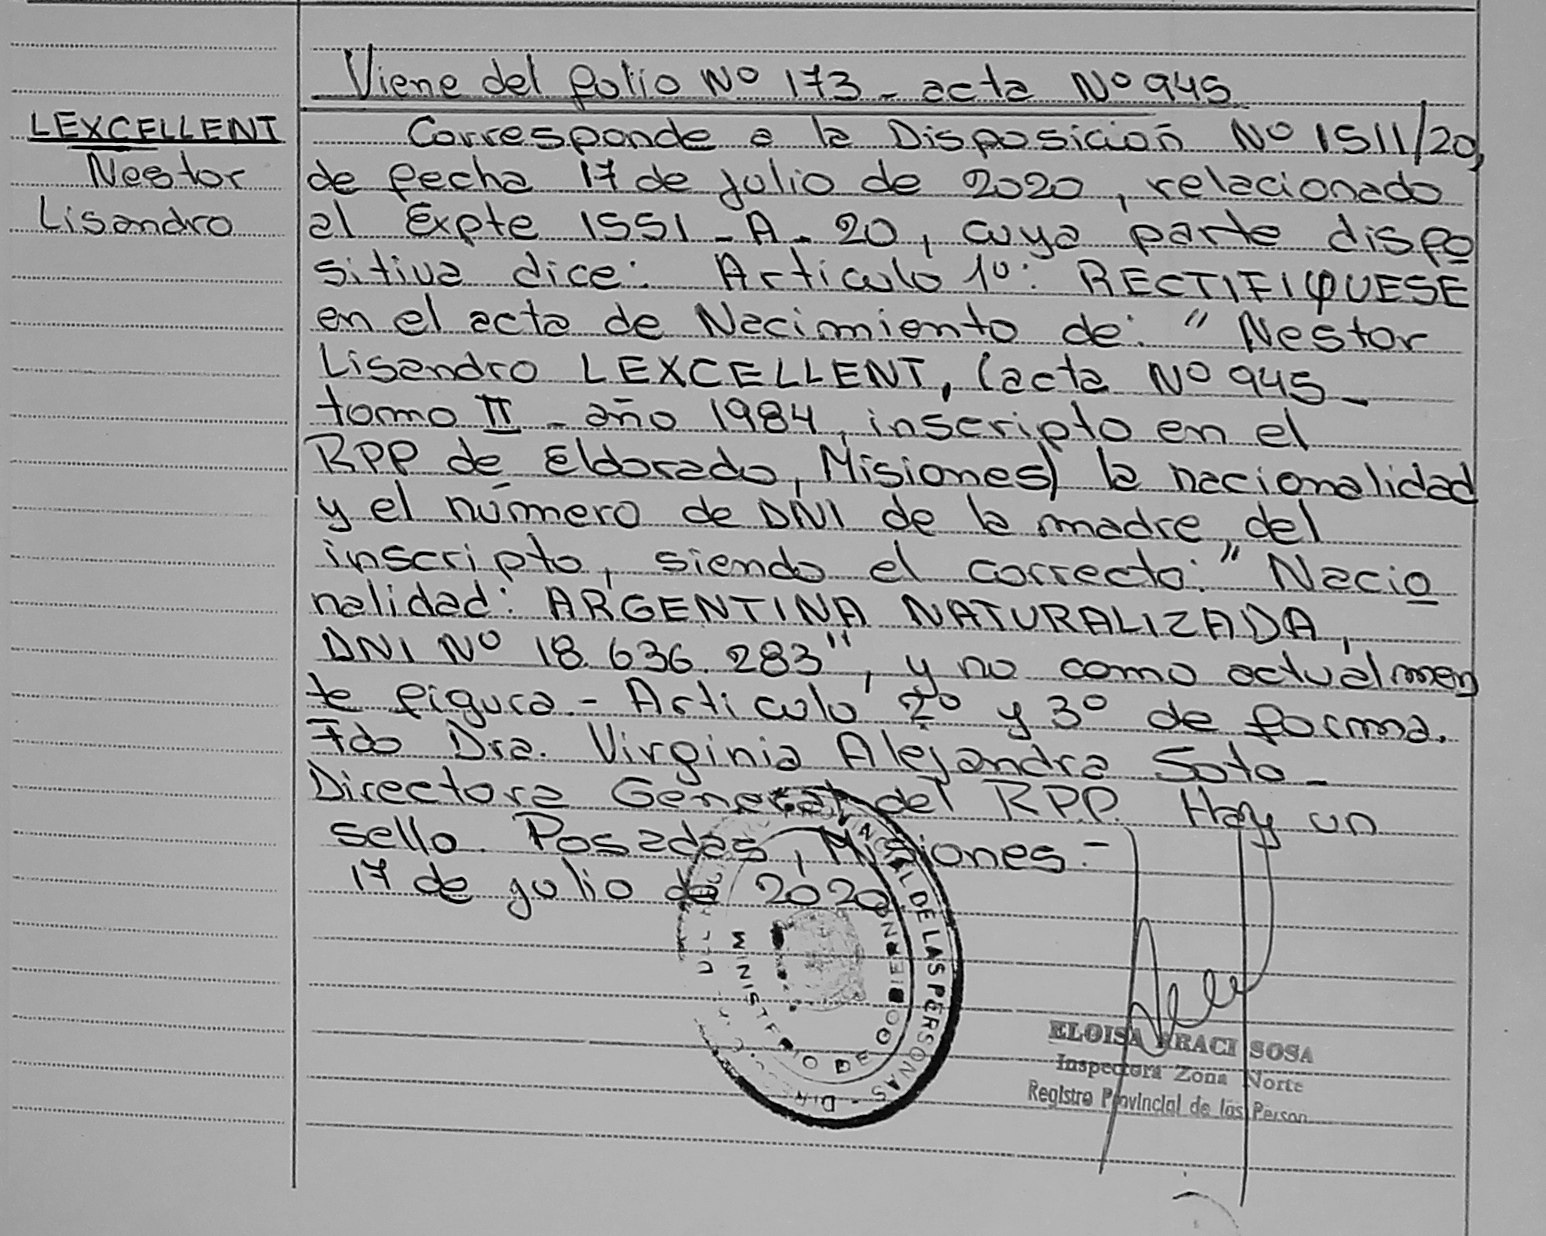 Viene del folio Nº 173 - acta Nº 945
LEXCELLENT
Nestor
Lisandro
Corresponde a la Disposición Nº 1511/20,
de fecha 17 de julio de 2020, relacionado
al Expte 1551 - A - 20, cuya parte dispo
sitiva dice: Artículo 1º: RECTIFIQUESE
en el acta de Nacimiento de: "Nestor
Lisandro LEXCELLENT, (acta Nº 945 -
tomo II - año 1984, inscripto en el
RPP de Eldorado, Misiones) la nacionalidad
y el número de DNI de la madre del
inscripto, siendo el correcto: "Nacio
nalidad: ARGENTINA NATURALIZADA,
DNI Nº 18.636.283", y no como actualmen
te figura - Artículo 2º y 3º de forma.
Fdo Dra. Virginia Alejandra Soto -
Directora General del RPP. Hay un
sello. Posadas, Misiones. -
17 de julio de 2020
DE LAS PERSONAS
MINISTERIO DE GOBIERNO
ELOISA ARACI SOSA
Inspectora Zona Norte
Registro Provincial de las Person